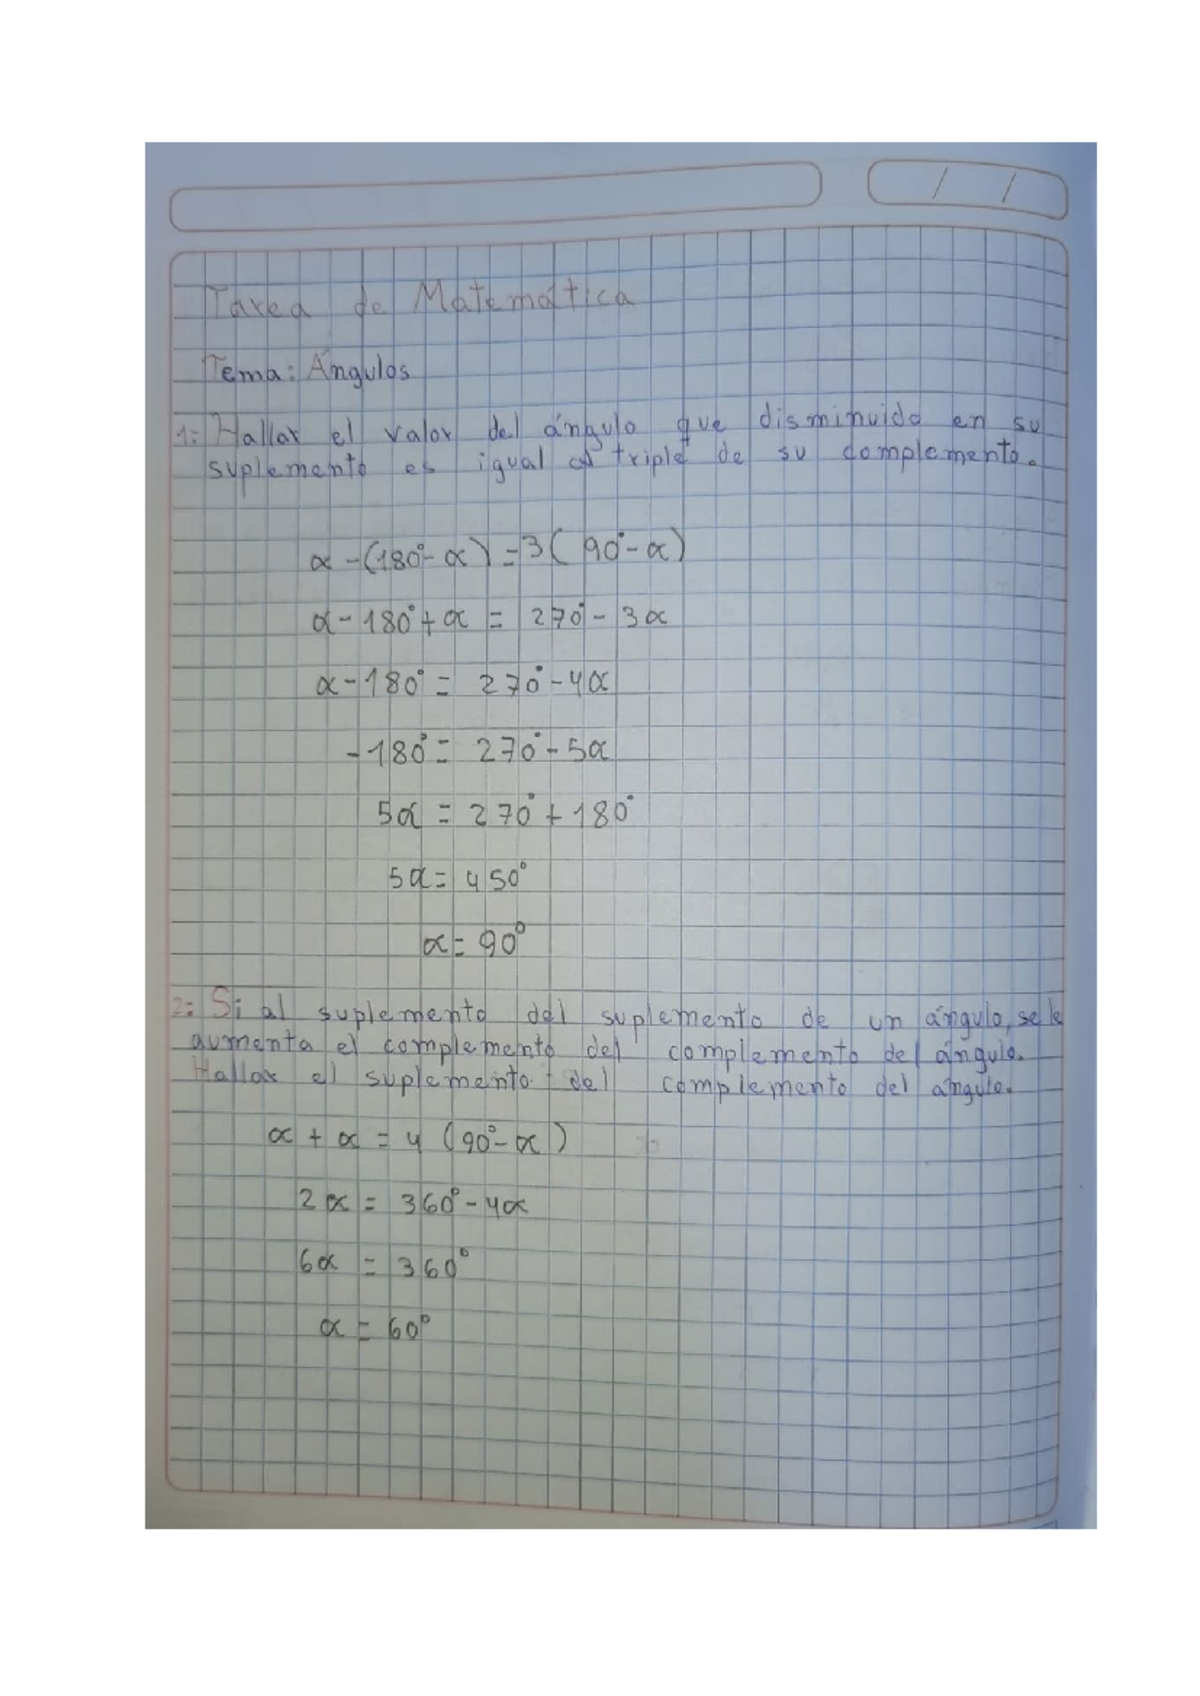 Tarea de Matemática
Tema: Ángulos
1: Hallar el valor del ángulo que disminuido en su
suplemento es igual al triple de su complemento.
α - (180° - α) = 3 (90° - α)
α - 180° + α = 270° - 3α
α - 180° = 270° - 4α
- 180° = 270° - 5α
5α = 270° + 180°
5α = 450°
α = 90°
2: Si al suplemento del suplemento de un ángulo, se le
aumenta el complemento del complemento del ángulo.
Hallar el suplemento del complemento del ángulo.
α + α = 4 (90° - α)
2α = 360° - 4α
6α = 360°
α = 60°